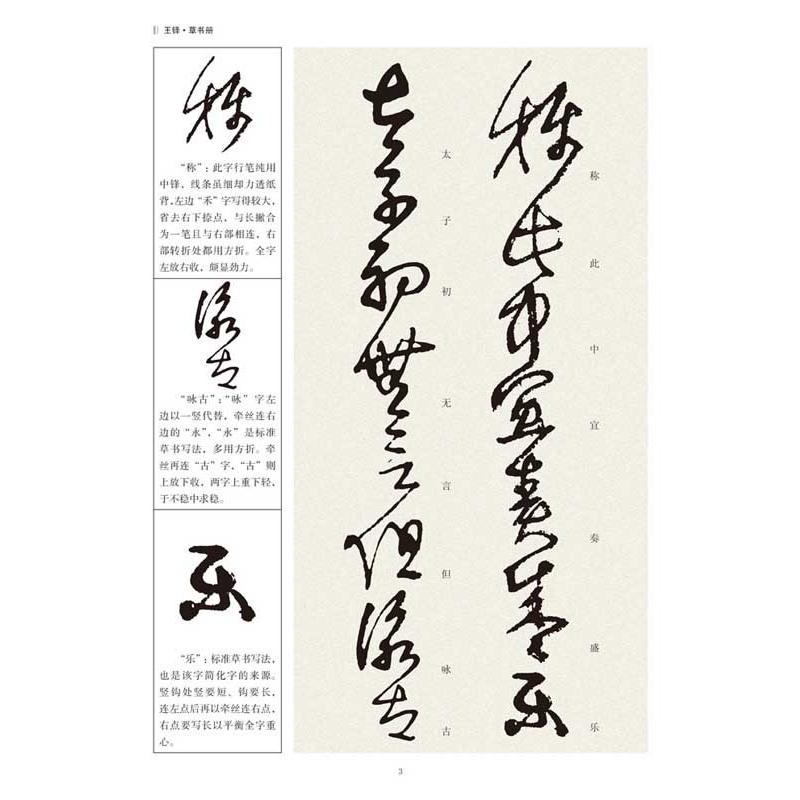 王铎·草书册
称
“称”：此字行笔纯用
中锋，线条虽细却力透纸
背，左边“禾”字写得较大，
省去右下捺点，与长撇合
为一笔且与右部相连，右
部转折处都用方折。全字
左放右收，颇显劲力。
咏古
“咏古”：“咏”字左
边以一竖代替，牵丝连右
边的“永”，“永”是标准
草书写法，多用方折。牵
丝再连“古”字，“古”则
上放下收，两字上重下轻，
于不稳中求稳。
乐
“乐”：标准草书写法，
也是该字简化字的来源。
竖钩处竖要短、钩要长，
连左点后再以牵丝连右点，
右点要写长以平衡全字重
心。
称此中宜奏盛乐
称此中宜奏盛乐
太子初无言但咏古
太子初无言但咏古
3